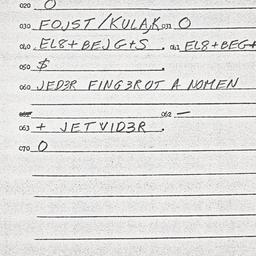 020 O
030 FOJST/KULAK 031 O
040 EL8+BEJG+S. 041 EL8+BEG+
050 $ .
060 JED3R FING3ROT A NOMEN
062 —
063 + JETVID3R .
070 O